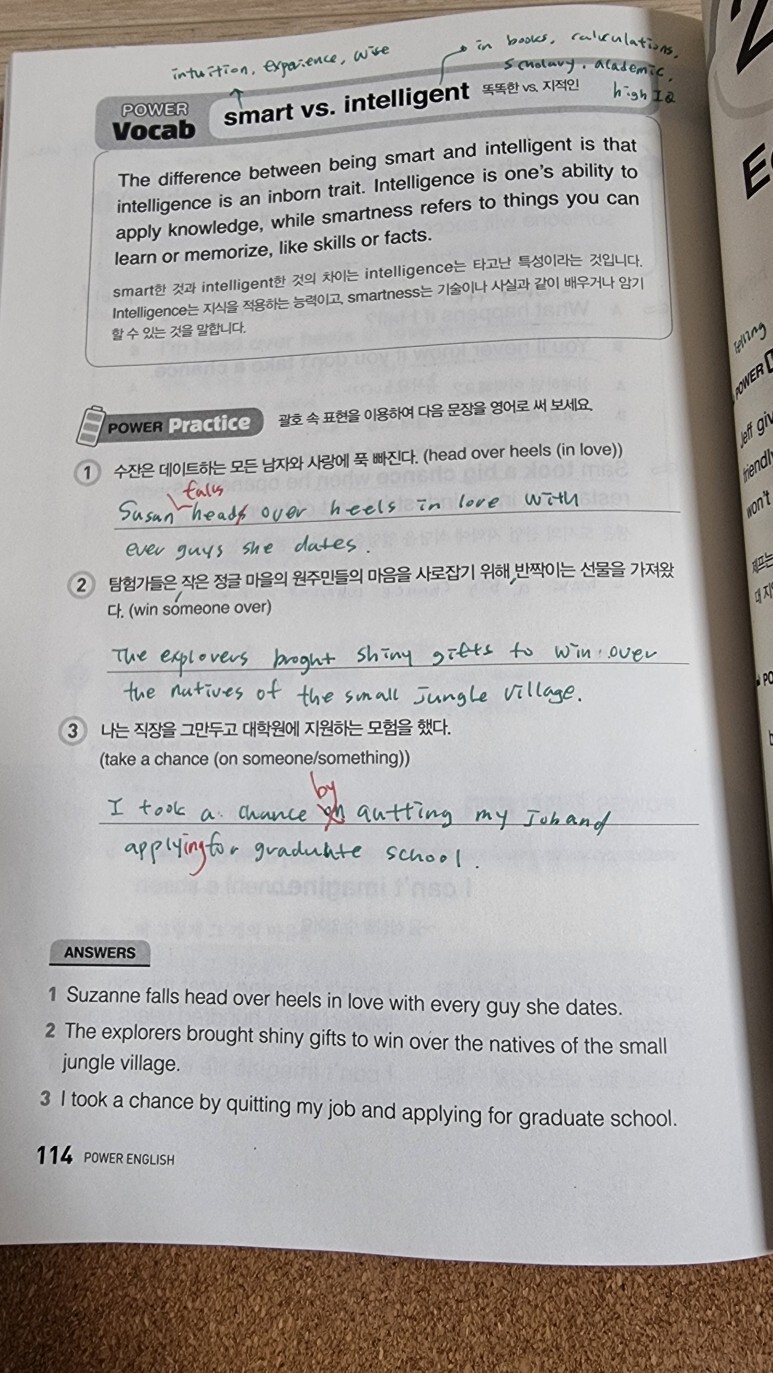 intuition, experience, wise
in books, calculations,
scholary, academic,
high IQ
POWER
Vocab
smart vs. intelligent 똑똑한 vs. 지적인
The difference between being smart and intelligent is that
intelligence is an inborn trait. Intelligence is one's ability to
apply knowledge, while smartness refers to things you can
learn or memorize, like skills or facts.
smart한 것과 intelligent한 것의 차이는 intelligence는 타고난 특성이라는 것입니다.
Intelligence는 지식을 적용하는 능력이고, smartness는 기술이나 사실과 같이 배우거나 암기
할 수 있는 것을 말합니다.
POWER Practice 괄호 속 표현을 이용하여 다음 문장을 영어로 써 보세요.
1 수잔은 데이트하는 모든 남자와 사랑에 푹 빠진다. (head over heels (in love))
falls
Susan heads over heels in love with
ever guys she dates.
2 탐험가들은 작은 정글 마을의 원주민들의 마음을 사로잡기 위해, 반짝이는 선물을 가져왔
다. (win someone over)
The explorers broght shiny gifts to win over
the natives of the small jungle village.
3 나는 직장을 그만두고 대학원에 지원하는 모험을 했다.
(take a chance (on someone/something))
by
I took a chance on qutting my Job and
applying for graduate school.
ANSWERS
1 Suzanne falls head over heels in love with every guy she dates.
2 The explorers brought shiny gifts to win over the natives of the small
jungle village.
3 I took a chance by quitting my job and applying for graduate school.
114 POWER ENGLISH
2
E
telling
POWER
Jeff giv
friendly
won't
제프는
데 지
PO